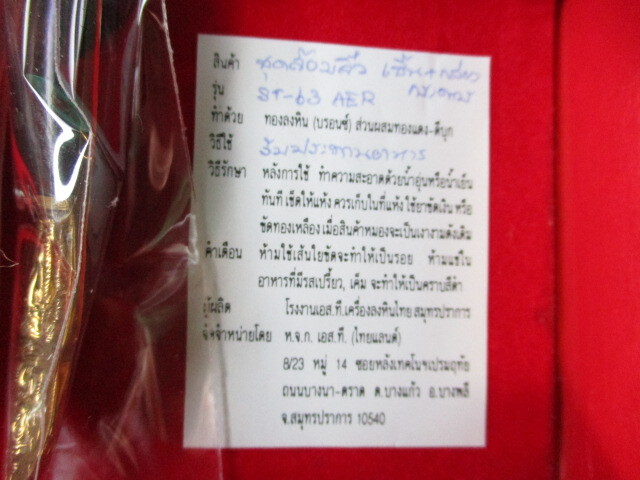 สินค้า ชุดส้อม
รุ่น ST-63 AER
ทำด้วย ทองลงหิน (บรอนซ์) ส่วนผสมทองแดง-ดีบุก
วิธีใช้ รับประทานอาหาร
วิธีรักษา หลังการใช้ ทำความสะอาดด้วยน้ำอุ่นหรือน้ำเย็น
ทันที เช็ดให้แห้ง ควรเก็บในที่แห้ง ใช้ยาขัดเงิน หรือ
ขัดทองเหลือง เมื่อสินค้าหมองจะเป็นเงางามดังเดิม
คำเตือน ห้ามใช้เส้นใยขัดจะทำให้เป็นรอย ห้ามแช่ใน
อาหารที่มีรสเปรี้ยว, เค็ม จะทำให้เป็นคราบสีดำ
ผู้ผลิต โรงงานเอส.ที.เครื่องลงหินไทย สมุทรปราการ
จัดจำหน่ายโดย ห.จ.ก. เอส.ที. (ไทยแลนด์)
8/23 หมู่ 14 ซอยหลังเทคโนฯเปรมฤทัย
ถนนบางนา-ตราด ต.บางแก้ว อ.บางพลี
จ.สมุทรปราการ 10540